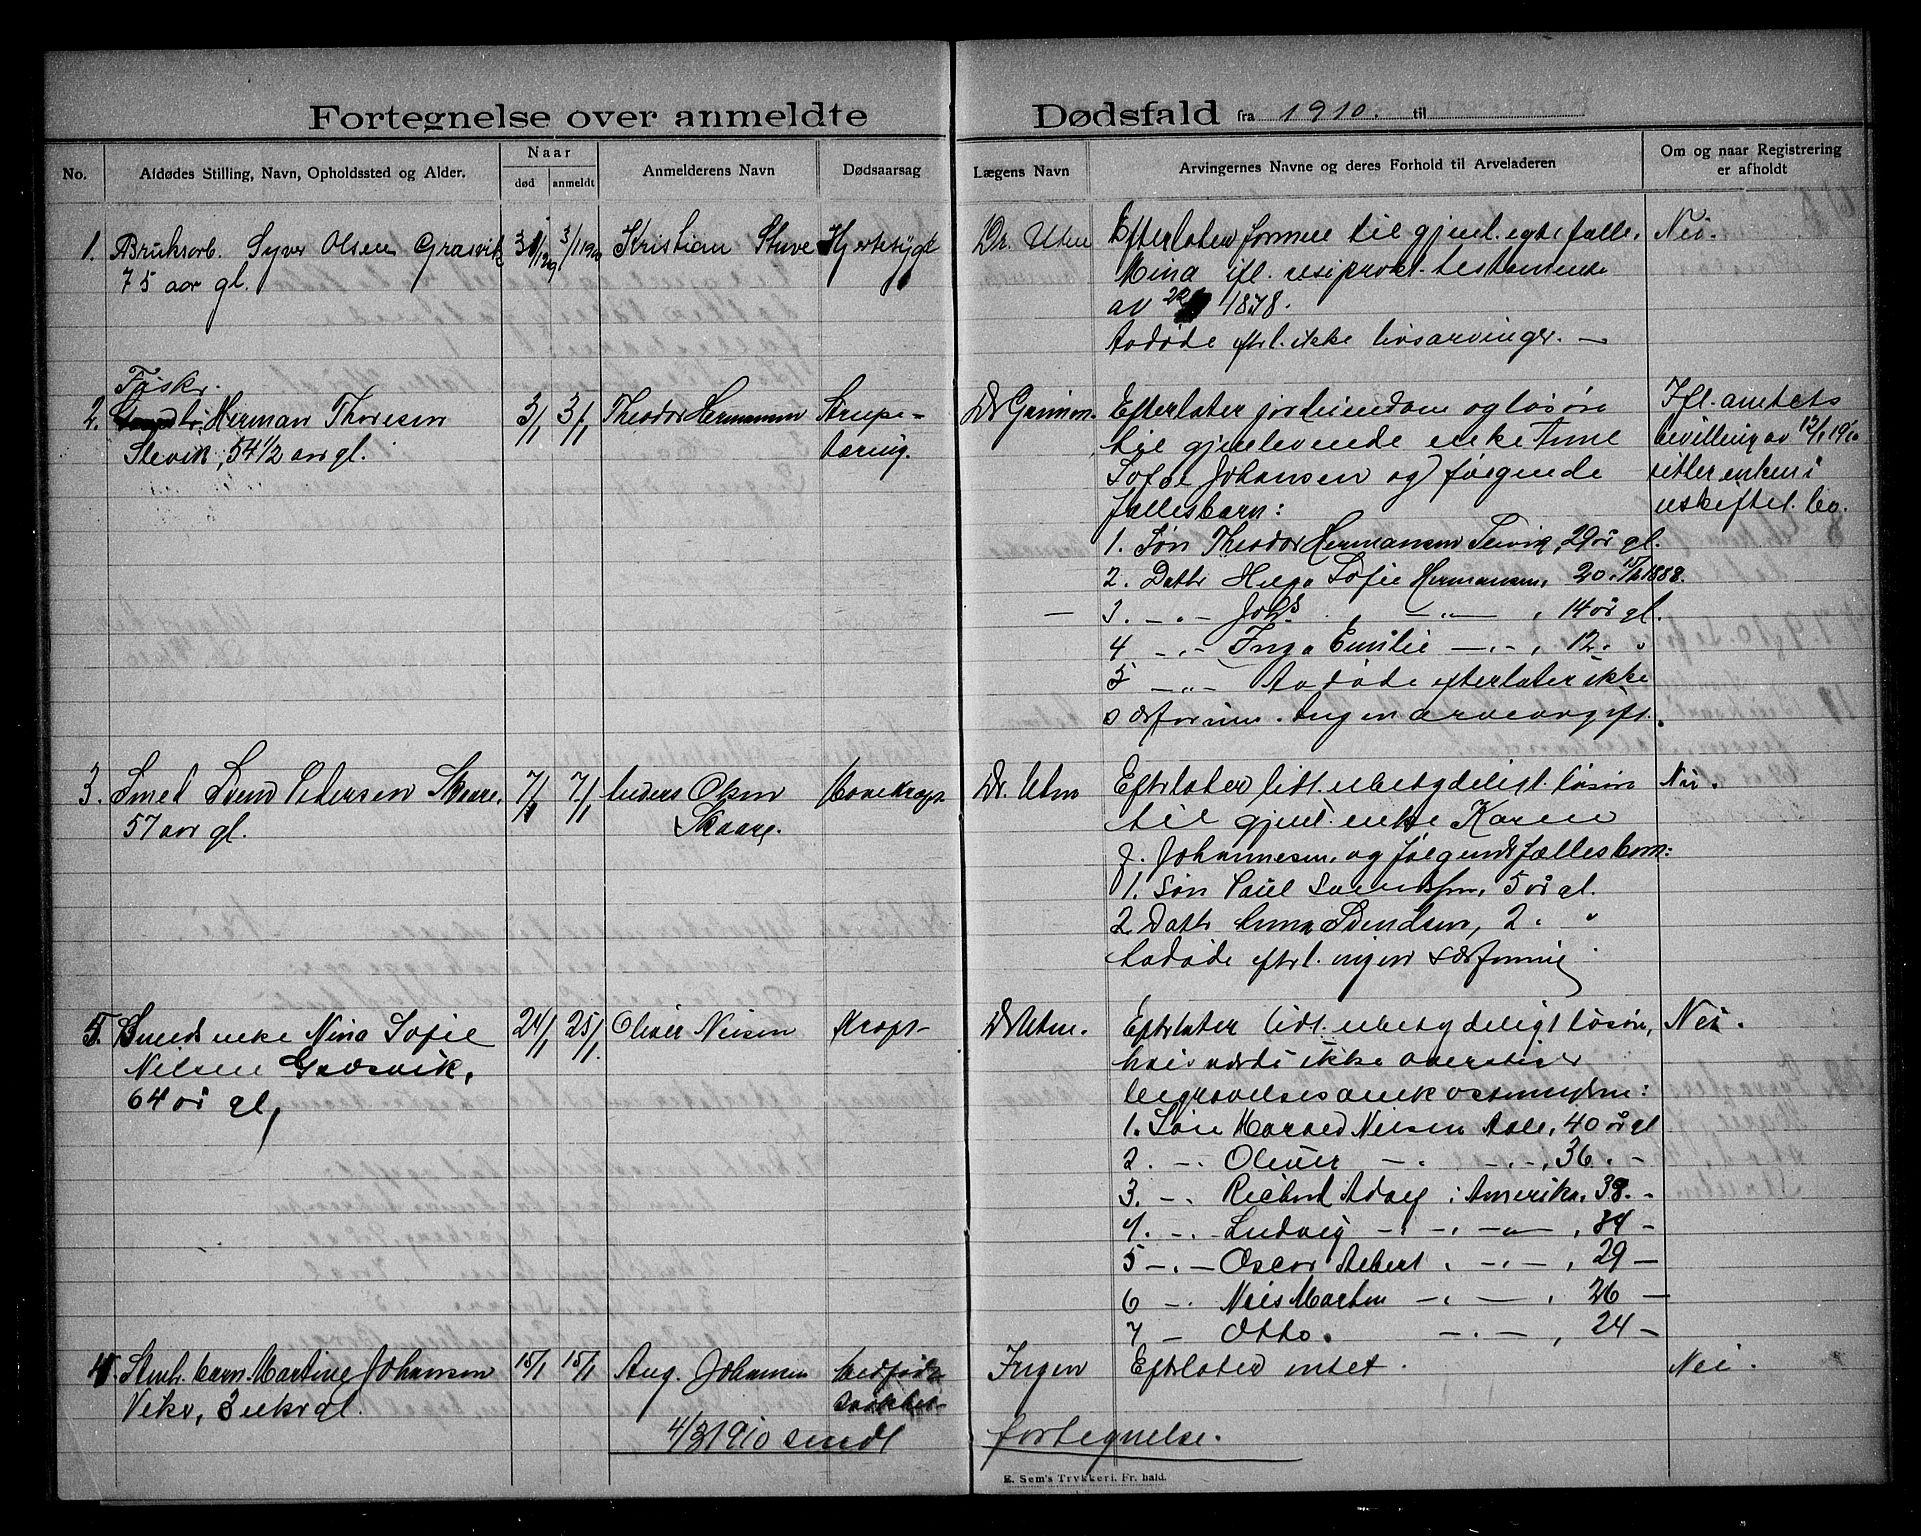 Fortegnelse over anmeldte Dødsfald fra 1910. til
No.
Afdødes Stilling, Navn, Opholdssted og Alder.
Naar
død
anmeldt
Anmelderens Navn
Dødsaarsag
Lægens Navn
Arvingernes Navne og deres Forhold til Arveladeren
Om og naar Registrering
er afholdt
1. Bruksarb. Syver Olsen Græsvik
75 aar gl.
3/1 1910
Kristian Stuve
Hjertesygd
Dr. Utne
Efterlater formue til gjenl. egtefælle
Mina ifl. resiprokt testamente
av 22 1878.
Avdøde efterl. ikke livsarvinger. —
Fisker
2. Herman Thoresen
Slevik, 54 1/2 aar gl.
3/1
3/1
Theodor Hermansen
Strupe-
tæring.
Dr Grimm.
Efterlater jordeiendom og løsøre
til gjenlevende enke Anne
Sofie Johansen og følgende
fællesbarn:
1. Søn Theodor Hermansen Slevik, 29 år gl.
2. Dattr Helga Sofie Hermansen, 20. 1888.
3. —.— Johs. —..— , 14 år gl.
4 —.— Inga Emilie —..— , 12. "
5 —..— Avdøde efterlater ikke
særformue. Ingen arveavgift.
Ifl. amtets
bevilling av 12/1 1910
sitter enken i
uskiftet bo.
3. Smed Svend Pedersen Skaare,
57 aar gl.
7/1
7/1
Anders Olsen
Skaare.
Mavekræft
Dr. Utne
Efterlater lidt ubetydeligt løsøre
til gjenl. enke Karen
f. Johannesen, og følgende fællesbarn:
1. Søn Paul Svendsen, 5 år gl.
2. Dattr Anna Svendsen, 2 . "
Avdøde efterl. ingen særformue
Nei.
Nei.
5. Smeds enke Nina Sofie
Nilsen Græsvik,
64 år gl,
24/1
25/1.
Oliver Nilsen
Kræft
Dr Utne.
Efterlater lidt ubetydeligt løsøre,
hvis værdi ikke overstiger
begravelsesomkostningerne:
1. Søn Harald Nilsen Aale, 40 år gl
2. —. Oliver —. —.—, 36. —
3. —. Richard Adolf i Amerika, 38. -
4. —. Ludvig —. —. — , 34 —
5 —.— Oscar Albert . —.—, 29 —
6 —. Nils Marten —. — , 26 —
7 — Otto. —.— , 24 —
Nei.
4. barn Martine Johansen
Viker, 3 uker gl.
15/1
15/1
Aug. Johansen
Medfødt
svakhet
Ingen
Efterlater intet.
Nei.
4/3 1910 sendt fortegnelse.
E. Sem's Trykkeri, Fr. hald.